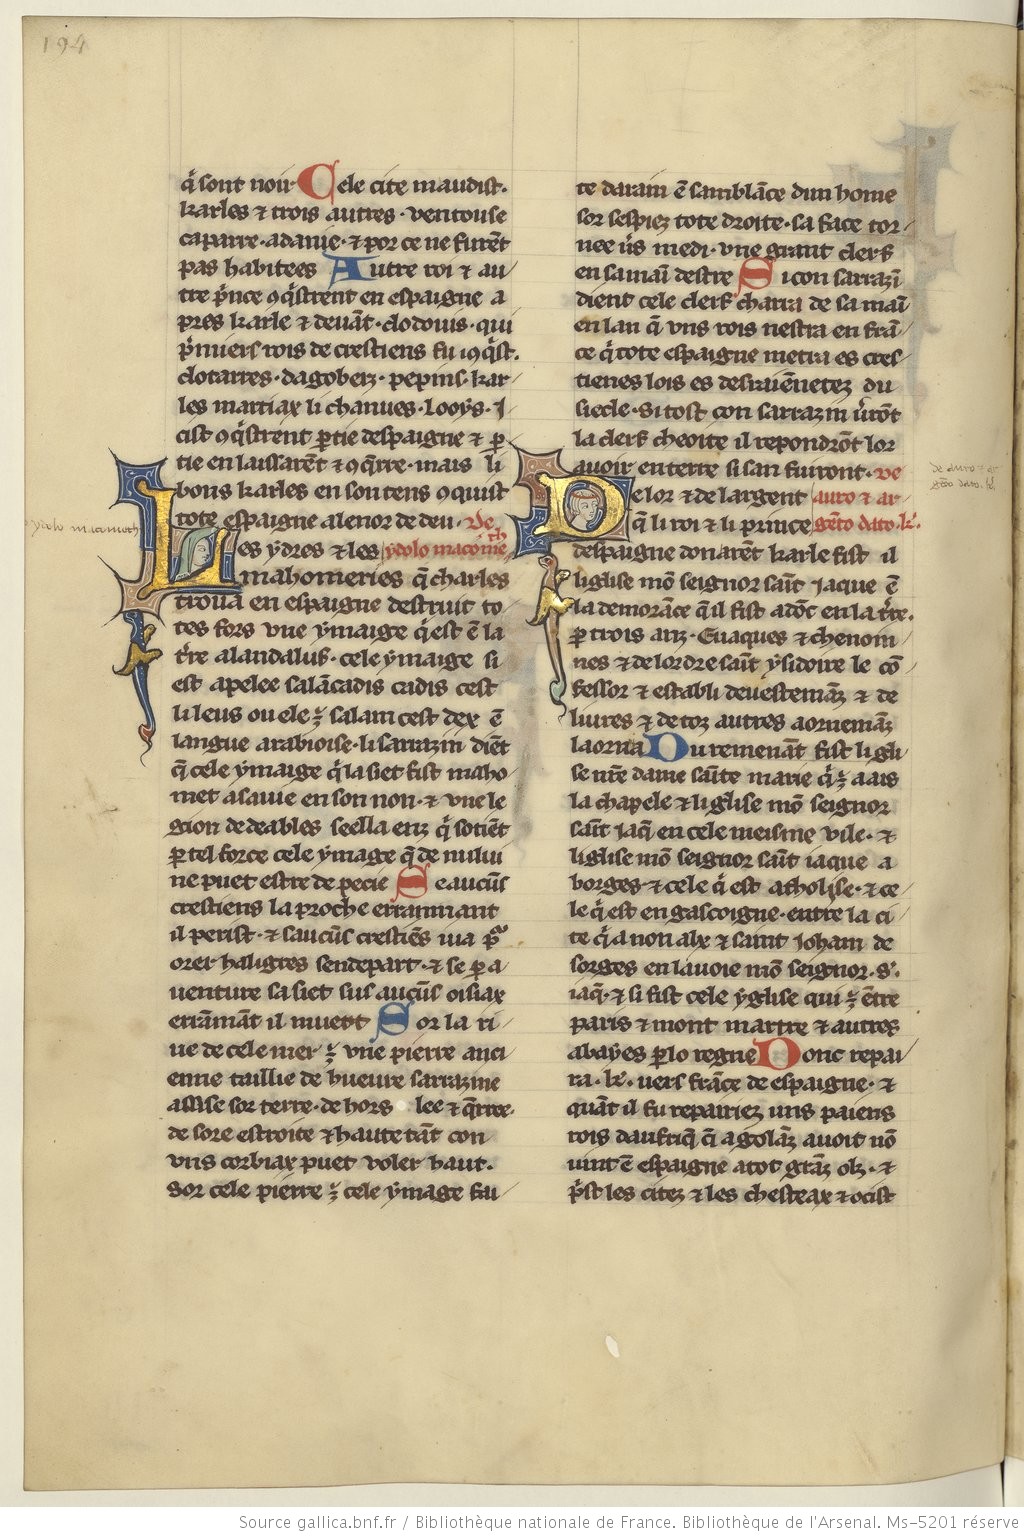 194
q̇ sont noir· Cele cite maudist·
karles ⁊ trois autres· ventouse
caparre· adanie· ⁊ por ce ne furẽt
pas habitees Autre roi ⁊ au/
tre p̃nce ꝯq̃strent en espaigne a
pres karle ⁊ deuãt· clodouis· qui
p̃miers rois de crestiens fu ꝯq̃st·
clotarres· dagoberz· pepins· kar/
les martiax li chauues· Looys· ⁊
cist ꝯq̃strent ꝑtie despaigne ⁊ ꝑ/
tie en laissarẽt ⁊ ꝯq̃rre· mais li
bons karles en son tens ꝯquist
tote espaigne alenor de deu· De
Les ydres ⁊ les ydolo macometh
mahomeries q̃ charles
troua en espaigne destruit to/
tes fors vne ymaige q̇ est ẽ la
t̃re alandaluf· cele ymaige si
est apelee salãcadis cadis cest
li leus ou ele ÷ salam cest dex ẽ
langue arabioise· li sarrazin diẽt
q̃ cele ymaige q̇ la siet fist maho/
met asauie en son non· ⁊ vne le/
gion de deables seella enz q̇ sotiẽt
ꝑ tel force cele ymage q̃ de nului
ne puet estre depecie Se aucũs
crestiens la proche erranmant
il perist· ⁊ saucũs crestiẽs iua pͬ
orer haligres sendepart· ⁊ se ꝑ a
uenture sasiet sus aucũs oisiax
errãmãt il muert Sor la ri/
ue de cele mer ÷ vne pierre anci/
enne taillie de hueure sarrazine
assise sor terre· de hors lee ⁊ q̃rree·
de sore estroite ⁊ haute tãt con
vns corbiax puet voler haut·
Sor cele pierre ÷ cele ymage fai/
te darain ẽ samblãce dun home
sor sespiez tote droite· sa face tor/
nee ũs medi· vne grant clerf
en sa maĩ destre Si con sarrazĩ
dient cele clerf charra de sa maĩ
en lan q̃ vns rois nestra en frã/
ce q̇ tote espaigne metra es cres/
tienes lois es desrauẽnetez du
siecle· Si tost con sarrazin ũrõt
la clerf cheoite il repondrõt lor
auoir en terre si san fuiront· De
Delor ⁊ de largent auro ⁊ ar/
q̃ li roi ⁊ li prince gẽto dato· k̃·
despaigne donarẽt karle fist il
liglise mõ seignor saĩt Jaque ẽ
la demorãce q̃ il fist adõc en la t̃re·
ꝑ trois anz· Euaques ⁊ chenoin/
nes ⁊ de lordre saĩt ysidoire le cõ/
fessor ⁊ establi deuestemãz ⁊ de
liures ⁊ de toz autres aornemãz
laorna Du remenãt fist ligli/
se nr̃e dame saĩte marie q̇ ÷ a ais
la chapele ⁊ liglise mõ seignor
saĩt Jaq̃ en cele meisme vile· ⁊
liglise mõ seignor saĩt iaque a
borges ⁊ cele q̇ est atholose· ⁊ ce/
le q̇ est en gascoigne· entre la ci/
te q̇ a non alx ⁊ saint Joham de
sorges en lauoie mõ seignor· s̃·
iaq̃· ⁊ si fist cele yglise qui ÷ ẽtre
paris ⁊ mont martre ⁊ autres
abayes ꝑ lo regne Donc repai/
ra· k̃· uers frãce de espaigne· ⁊
quãt il fu repairiez uns paiens
rois daufriq̃ q̃ agolãz auoit nõ
uint ẽ espaigne atot grãz olz· ⁊
p̃st les citez ⁊ les chesteax ⁊ ocist
de auro ⁊ ar
gẽto dato· k̃·
ydolo macometh
Source gallica.bnf.fr / Bibliothèque nationale de France. Bibliothèque de l'Arsenal. Ms-5201 réserve